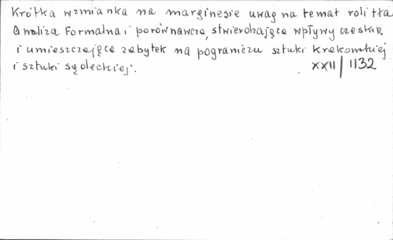 Krótka wzmianka na marginesie uwag na temat roli tła
Analiza formalna i porównawcza, stwierdzająca wpływy czeskie
i umieszczająca zabytek na pograniczu sztuki krakowskiej
i sztuki sądeckiej.
XXII/1132